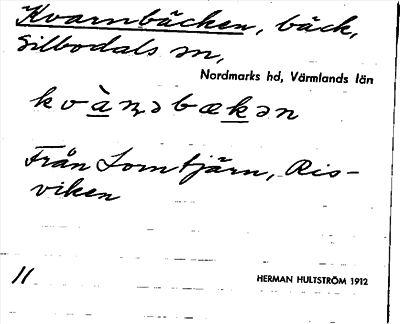 Kvarnbäcken, bäck,
Silbodals sn,
Nordmarks hd, Värmlands län
kvàꞃəbækən
Från Lomtjärn, Ris-
viken
11 HERMAN HULTSTRÖM 1912